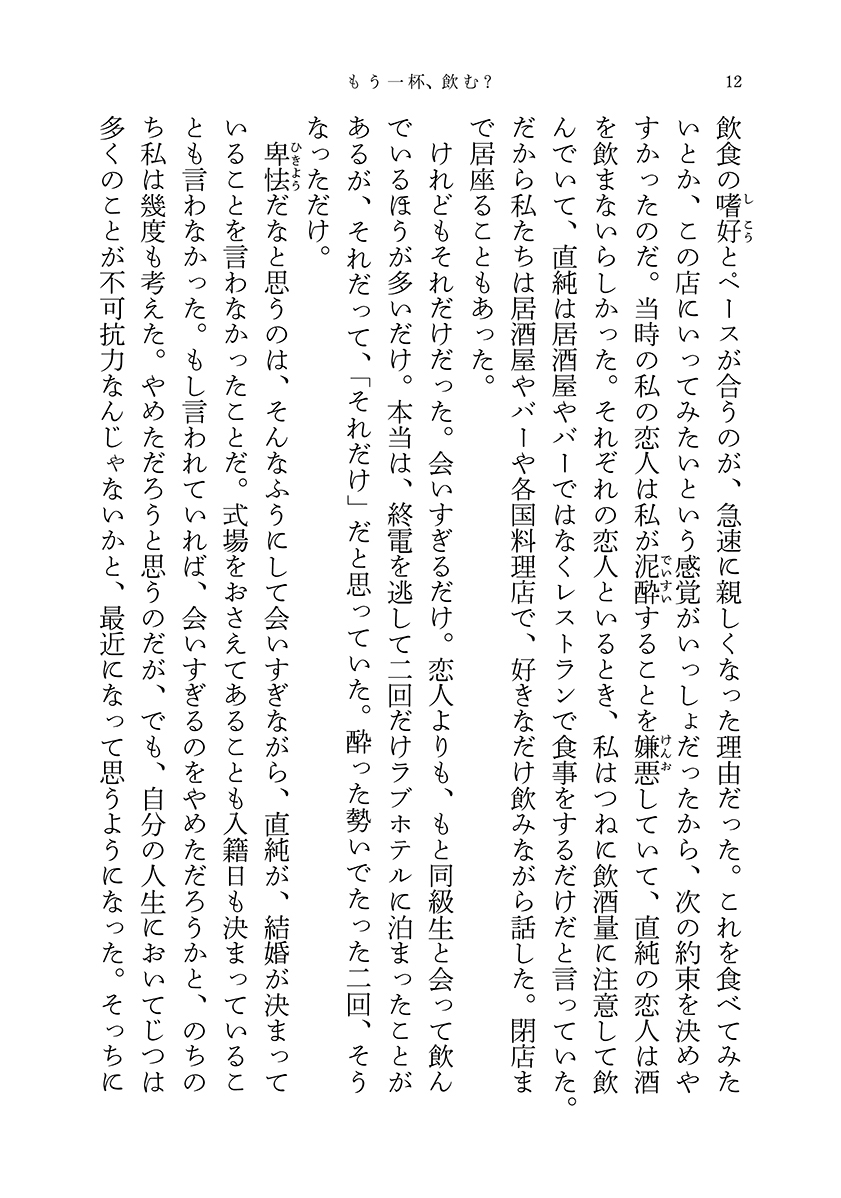 もう一杯、飲む？
12
飲食の嗜好とペースが合うのが、急速に親しくなった理由だった。これを食べてみた
いとか、この店にいってみたいという感覚がいっしょだったから、次の約束を決めや
すかったのだ。当時の私の恋人は私が泥酔することを嫌悪していて、直純の恋人は酒
を飲まないらしかった。それぞれの恋人といるとき、私はつねに飲酒量に注意して飲
んでいて、直純は居酒屋やバーではなくレストランで食事をするだけだと言っていた。
だから私たちは居酒屋やバーや各国料理店で、好きなだけ飲みながら話した。閉店ま
で居座ることもあった。
けれどもそれだけだった。会いすぎるだけ。恋人よりも、もと同級生と会って飲ん
でいるほうが多いだけ。本当は、終電を逃して二回だけラブホテルに泊まったことが
あるが、それだって、「それだけ」だと思っていた。酔った勢いでたった二回、そう
なっただけ。
卑怯だなと思うのは、そんなふうにして会いすぎながら、直純が、結婚が決まって
いることを言わなかったことだ。式場をおさえてあることも入籍日も決まっているこ
とも言わなかった。もし言われていれば、会いすぎるのをやめただろうかと、のちの
ち私は幾度も考えた。やめただろうと思うのだが、でも、自分の人生においてじつは
多くのことが不可抗力なんじゃないかと、最近になって思うようになった。そっちに